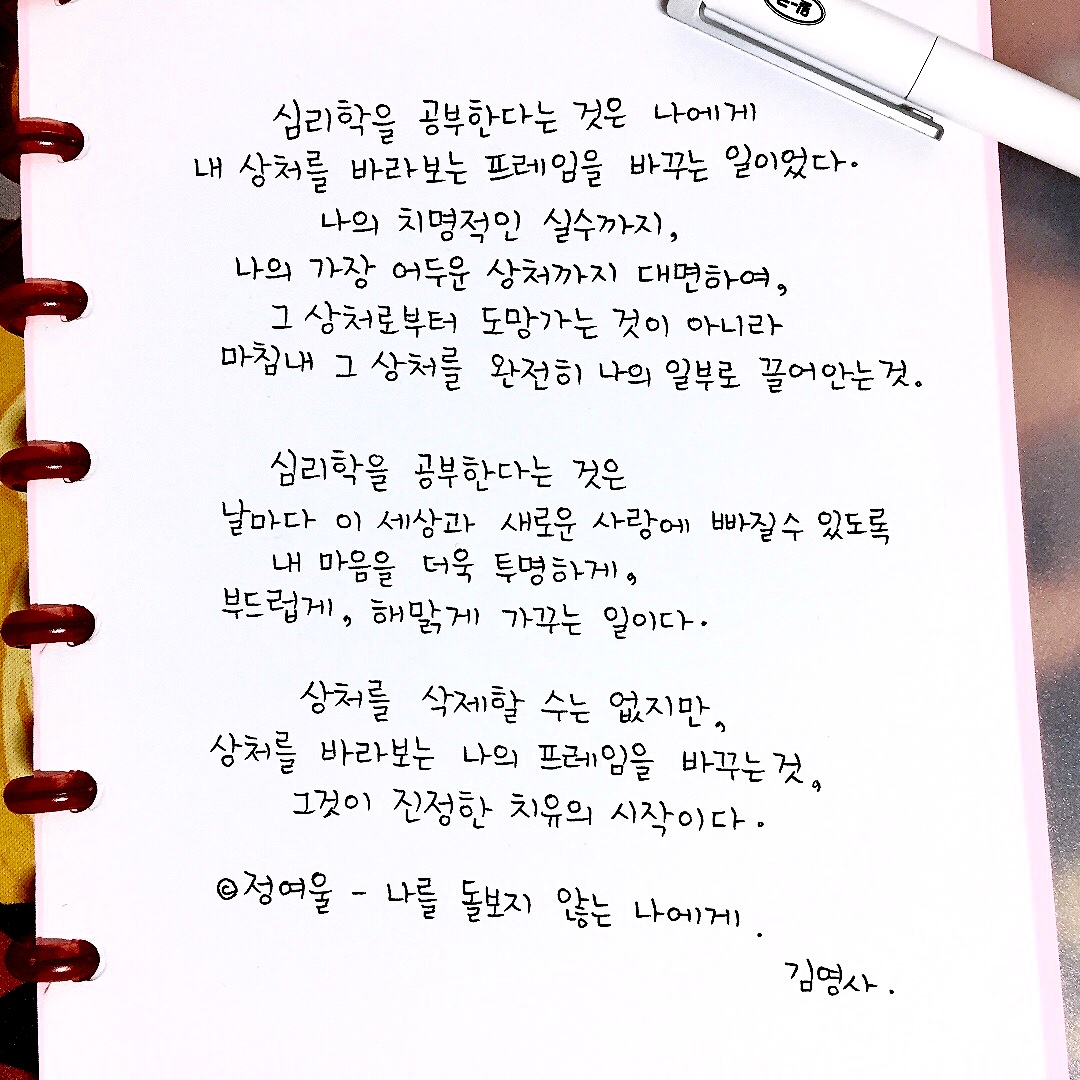 심리학을 공부한다는 것은 나에게
내 상처를 바라보는 프레임을 바꾸는 일이었다.
나의 치명적인 실수까지,
나의 가장 어두운 상처까지 대면하여,
그 상처로부터 도망가는 것이 아니라
마침내 그 상처를 완전히 나의 일부로 끌어안는것.
심리학을 공부한다는 것은
날마다 이 세상과 새로운 사랑에 빠질수 있도록
내 마음을 더욱 투명하게,
부드럽게, 해맑게 가꾸는 일이다.
상처를 삭제할 수는 없지만,
상처를 바라보는 나의 프레임을 바꾸는것,
그것이 진정한 치유의 시작이다.
©정여울 - 나를 돌보지 않는 나에게.
김영사.